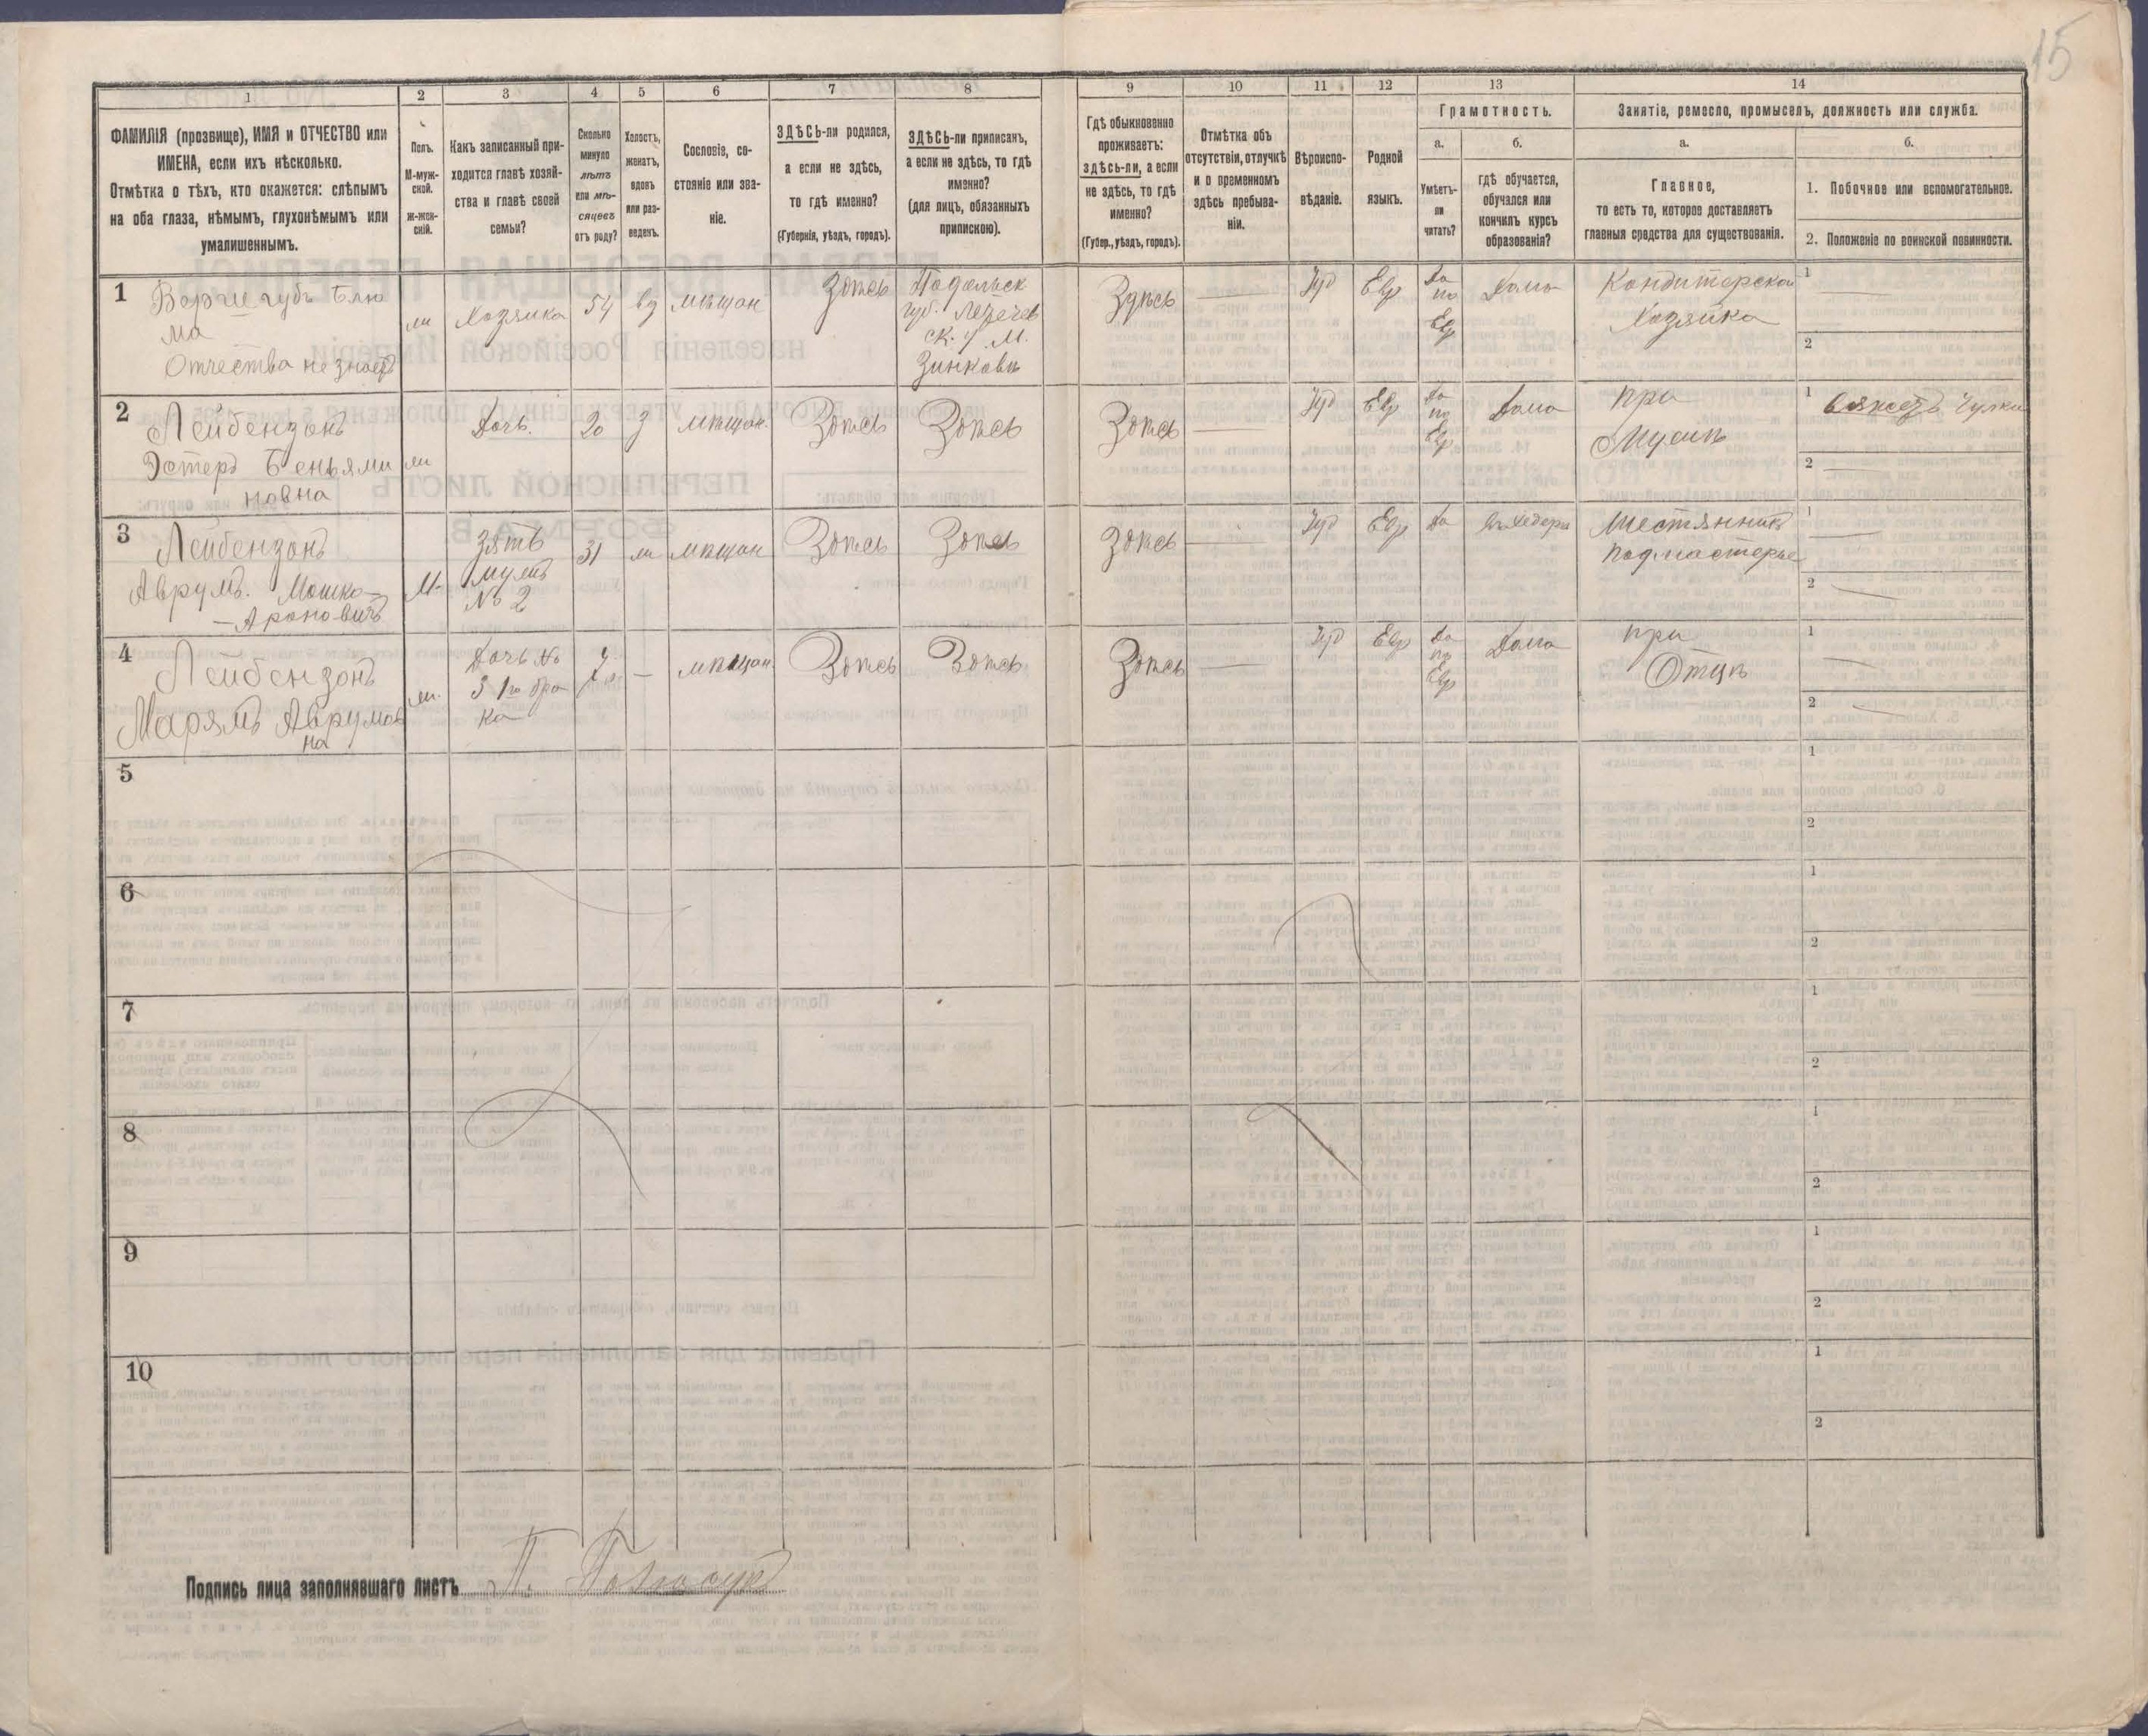 15
1
2
3
4
5
6
7
8
9
10
11
12
13
14
ФАМИЛІЯ (прозвище), ИМЯ и ОТЧЕСТВО или
ИМЕНА, если ихъ нѣсколько.
Отмѣтка о тѣхъ, кто окажется: слѣпымъ
на оба глаза, нѣмымъ, глухонѣмымъ или
умалишеннымъ.
Полъ.
М-муж-
ской.
ж-жен-
скій.
Какъ записанный при-
ходится главѣ хозяй-
ства и главѣ своей
семьи?
Сколько
минуло
лѣтъ
или мѣ-
сяцевъ
отъ роду?
Холостъ,
женатъ,
вдовъ
или раз-
веденъ.
Сословіе, со-
стояніе или зва-
ніе.
ЗДѢСЬ-ли родился,
а если не здѣсь,
то гдѣ именно?
(Губернія, уѣздъ, городъ).
ЗДѢСЬ-ли приписанъ,
а если не здѣсь, то гдѣ
именно?
(для лицъ, обязанныхъ
припискою).
Гдѣ обыкновенно
проживаетъ:
здѣсь-ли, а если
не здѣсь, то гдѣ
именно?
(Губер., уѣздъ, городъ).
Отмѣтка объ
отсутствіи, отлучкѣ
и о временномъ
здѣсь пребыва-
ніи.
Вѣроиспо-
вѣданіе.
Родной
языкъ.
Грамотность.
а.
Умѣетъ-
ли
читать?
б.
гдѣ обучается,
обучался или
кончилъ курсъ
образованія?
Занятіе, ремесло, промыселъ, должность или служба.
а.
Главное,
то есть то, которое доставляетъ
главныя средства для существованія.
б.
1. Побочное или вспомогательное.
2. Положеніе по воинской повинности.
1
ма
Отчества не знаетъ
Хозяйка
54
вд
мѣщан
Здѣсь
Подольск
губ.
ск. у. м.
Зинковъ
Здѣсь
Іуд
Евр
Да
по
Евр
Дома
Кондитерская
Хозяйка
1
2
2
Лейбензонъ
Эстеръ Беньями
новна
Дочь.
20
з
мѣщан.
Здѣсь
Здѣсь
Здѣсь
Іуд
Евр
Да
по
Евр
Дома
при
Мужѣ
1
вяжетъ чулки
2
3
Лейбензонъ
Аврумъ. Мошко-
-Ароновичъ
М.
Зять
мужъ
№ 2
31
мѣщан
Здѣсь
Здѣсь
Здѣсь
Іуд
Евр
Да
въ хедерѣ
Жестянникъ
подмастерье
1
2
4
Лейбензонъ
Марямъ Аврумов
на
Дочь №
3 1го бра
ка
—
мѣщан
Здѣсь
Здѣсь
Здѣсь
Іуд
Евр
Да
по
Евр
Дома
при
Отцѣ
1
2
5
1
2
6
1
2
7
1
2
8
1
2
9
1
2
10
1
2
Подпись лица заполнявшаго листъ